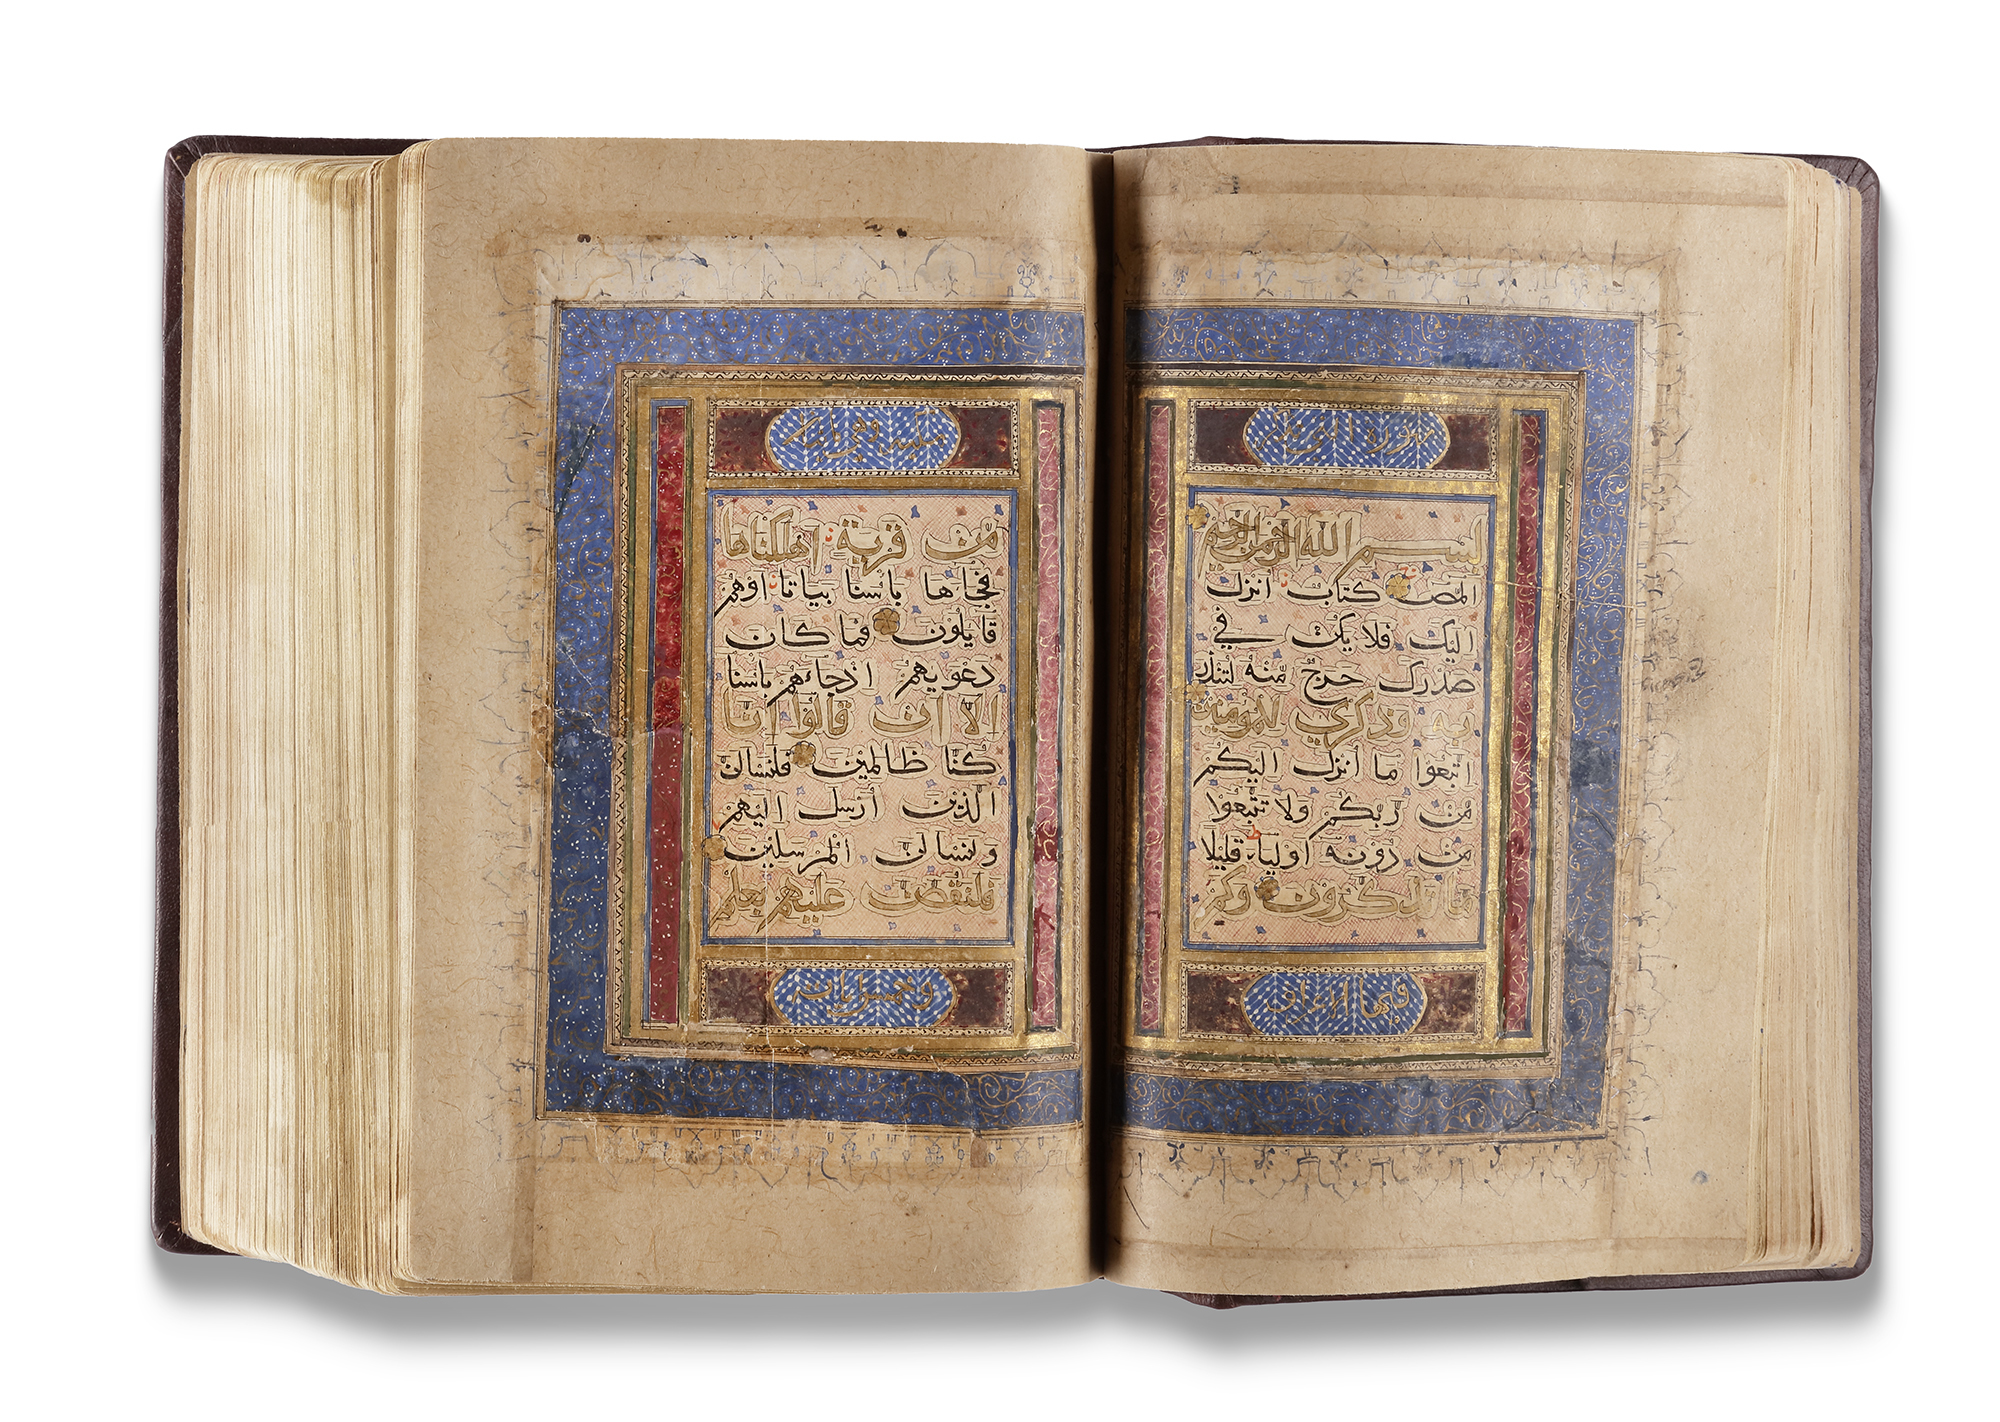 سورة
بسم الله الرحمن الرحيم
المص كتاب أنزل
اليك فلا يكن في
صدرك حرج منه لتنذر
به وذكري للمومنين
اتبعوا ما أنزل اليكم
من ربكم ولا تتبعوا
من دونه أولياء قليلا
ما تذكرون وكم
فيها
وهي
من قرية اهلكناها
فجاها باسنا بياتا اوهم
قايلون فما كان
دعويهم اذ جاءهم باسنا
الا ان قالوا انا
كنا ظالمين فلنسالن
الذين أرسل اليهم
ولنسالن المرسلين
فلنقصن عليهم بعلم
وخمس ايات